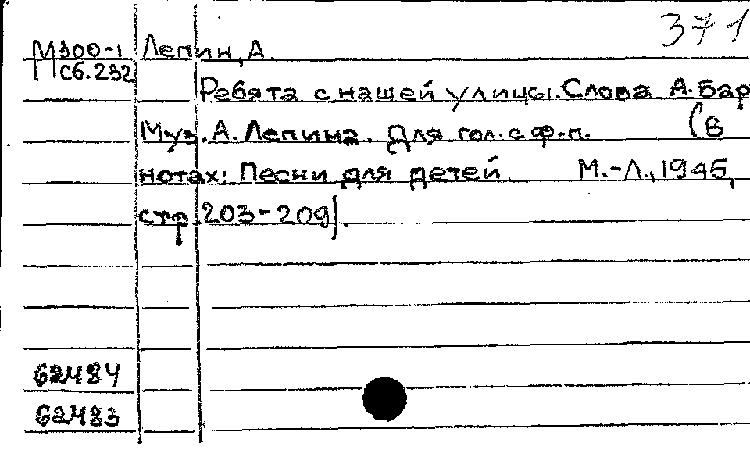 371
М300-1 Лепин, А.
Сб.232
Ребята с нашей улицы. Слова А. Бар
Муз. А. Лепина. Для гол. с ф-п. (в
нотах: Песни для детей. М.-Л., 1945,
стр. 203-209).
62484
62483